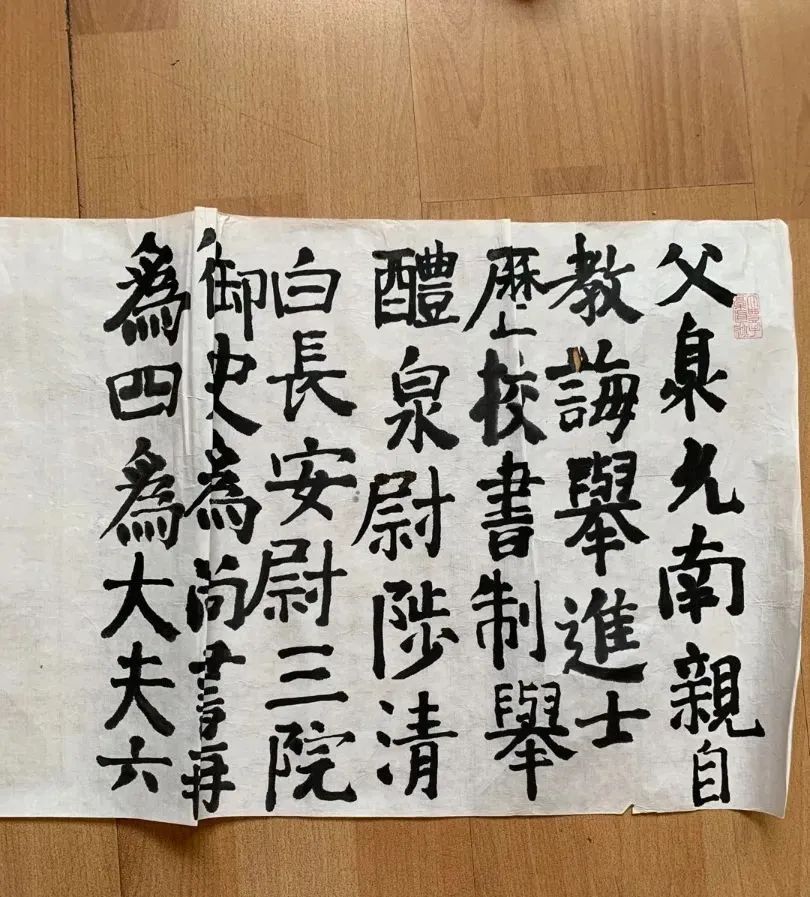 父臮允南親自
教誨舉進士
歷校書制舉
醴泉尉陟清
白長安尉三院
御史爲尚書再
爲四爲大夫六